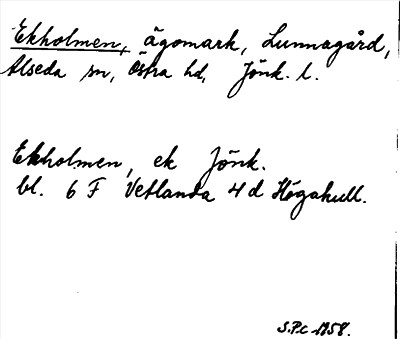 Ekholmen, ägomark, Lunnagård,
Alseda sn, Östra hd, Jönk. l.
Ekholmen, ek Jönk.
bl. 6 F Vetlanda 4 d Högahull.
S.P.C 1958.